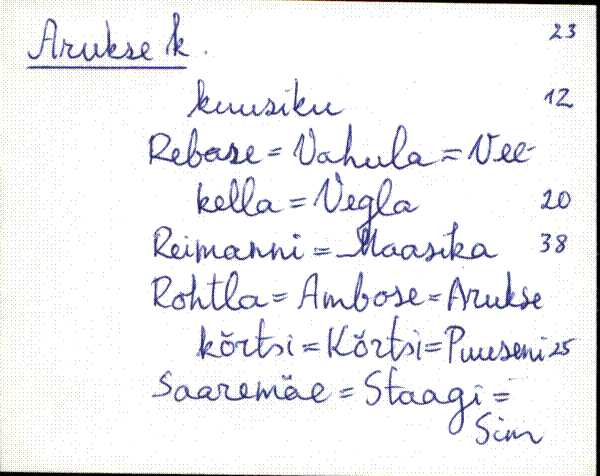 Arukse k. 23
kuusiku 12
Rebase = Vahula = Vee-
kella = Vegla 20
Reimanni = Maasika 38
Rohtla = Ambose = Arukse
kõrtsi = Kõrtsi = Puuseni 25
Saaremäe = Staagi =
Sim